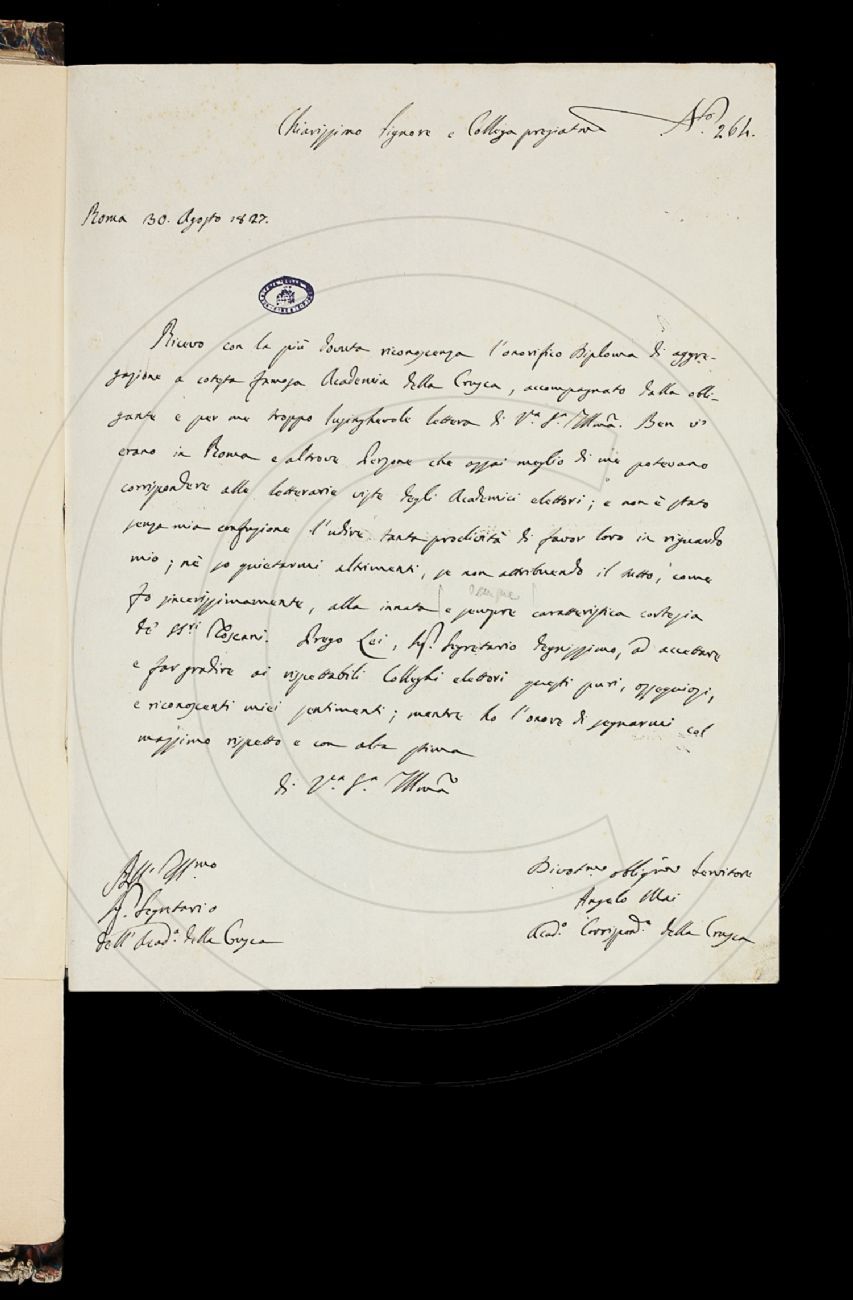 Chiarissimo Signore e Collega pregiatmo
N.o 264.
Roma 30. Agosto 1827.
Ricevo con la più dovuta riconoscenza l'onorifico Diploma di aggre-
gazione a cotesta famosa Academia della Crusca, accompagnato dalla obli-
gante e per me troppo lusinghevole lettera di V.a S.a Illma. Ben vi
erano in Roma e altrove Persone che assai meglio di me potevano
corrispondere alle letterarie viste degli Academici elettori; e non è stato
senza mia confusione l'udire tanta proclività di favor loro in riguardo
mio; nè so quietarmi altrimenti, se non attribuendo il tutto, come
fo sincerissimamente, alla innata e sempre caratteristica cortesia
de' SS.ri Toscani. Prego Lei, Sig.r Segretario degnissimo, ad accettare
e far gradire ai rispettabili Colleghi elettori questi puri, ossequiosi,
e riconoscenti miei sentimenti; mentre ho l'onore di segnarmi col
massimo rispetto e con alta stima
di V.a S.a Illma
Sig. Segretario
dell' Acad.a della Crusca
Divotmo obligmo Servitore
Angelo Mai
Acad.o Corrispond.e della Crusca